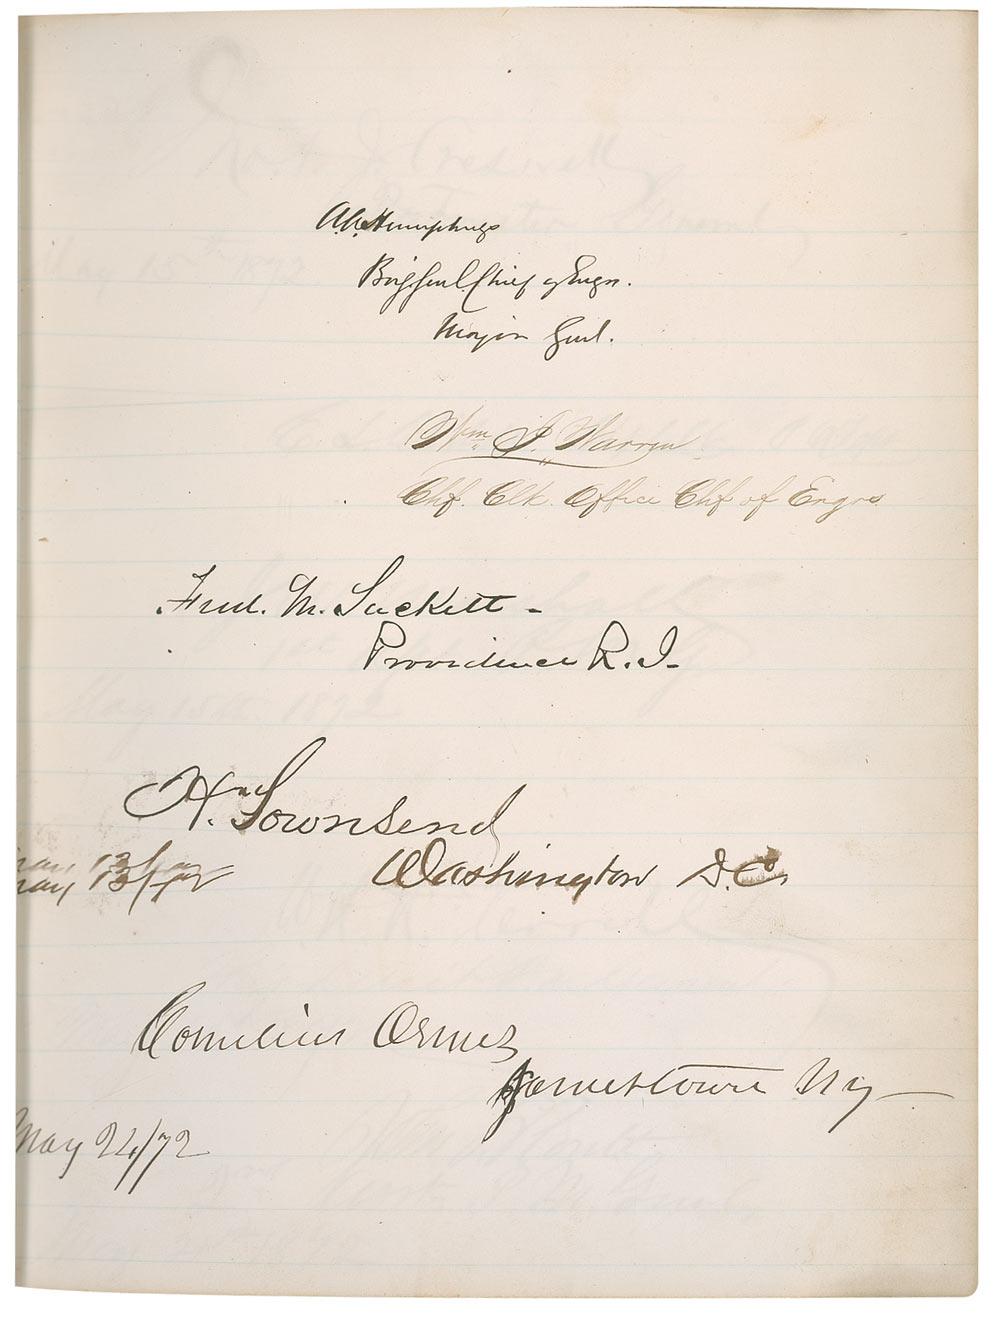 A.A. Humphreys
Brig Genl Chief of Engrs.
Major Genl.
Wm J. Warren
Chf. Clk. Office Chf of Engrs
Fred. M. Sackett -
Providence R.I.
H. Townsend
May 13/72
Washington D.C.
Cornelius Ormes
Jamestown Ny
May 24/72